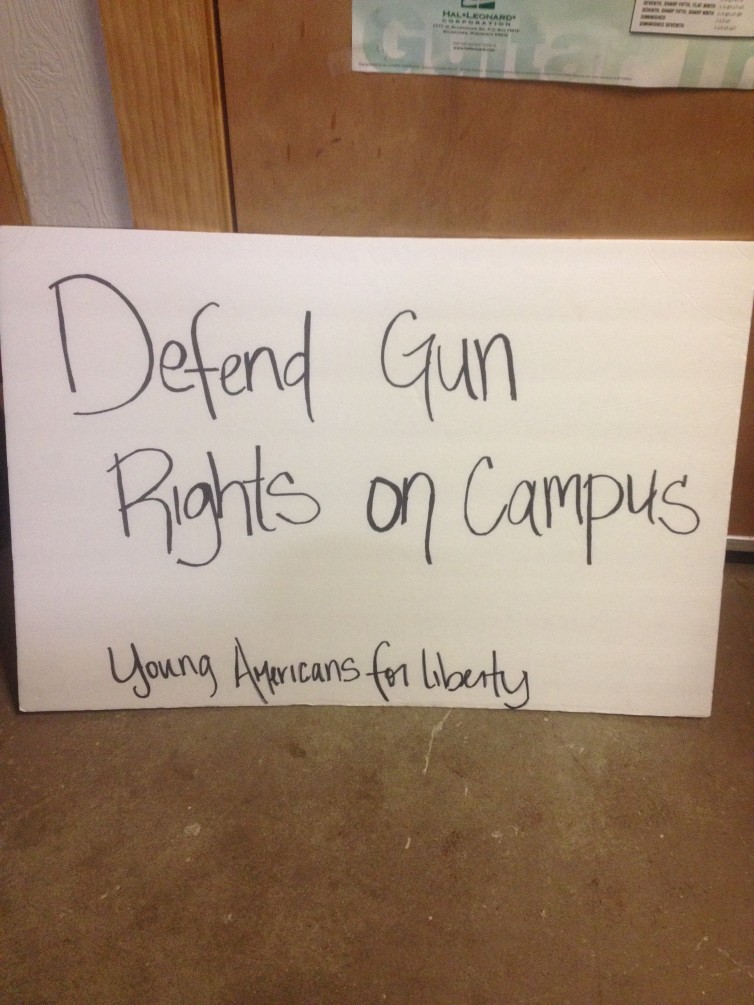 HAL•LEONARD®
CORPORATION
Guitar
Defend Gun
Rights on Campus
Young Americans for liberty